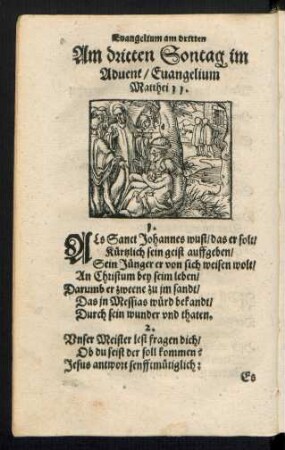 Evangelium am dritten
Am dritten Sontag im
Advent/ Euangelium
Matthei 11.
1.
ALs Sanct Johannes wust/ das er solt/
Kürtzlich sein geist auffgeben/
Sein Jünger er von sich weisen wolt/
An Christum bey seim leben/
Darumb er zweene zu jm sandt/
Das jn Messias würd bekandt/
Durch sein wunder vnd thaten.
2.
Vnser Meister lest fragen dich/
Ob du seist der soll kommen?
Jesus antwort senfftmütiglich:
Es